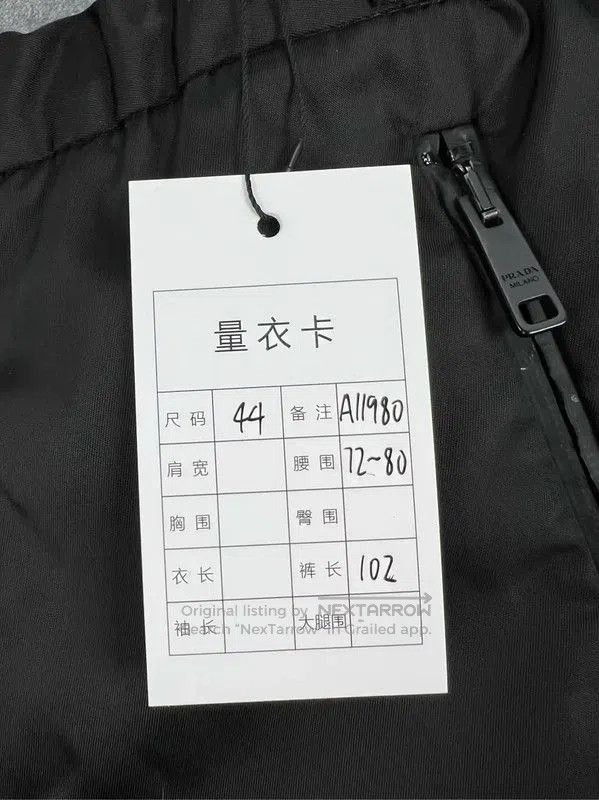 PRADA
MILANO
量衣卡
尺码 44 备注 A11980
肩宽 腰围 72~80
胸围 臀围
衣长 裤长 102
Original listing by NEXTARROW
袖长 大腿围
Search "NexTarrow" in Grailed app.